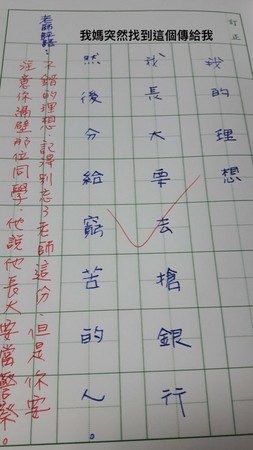 訂正
我媽突然找到這個傳給我
我的理想
我長大要去搶銀行
然後分給窮苦的人。
老師評語:
不錯的理想.記得別忘了老師這分.但是你要
注意你隔壁那位同學.他說他長大要當警察。